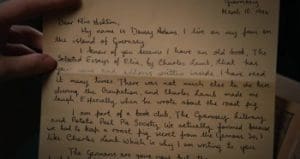 Guernsey
March 10, 1946
Dear Miss Ashton,
My name is Dawsey Adams. I live on my farm on
the island of Guernsey
I know of you because I have an old book, The
Selected Essays of Elia, by Charles Lamb, that has
your name and address written inside. I have read
it many times. There was not much else to do here
during the Occupation, and Charles Lamb made me
laugh. Especially when he wrote about the roast pig
I am part of a book club, The Guernsey Literary
and Potato Peel Pie Society. We actually formed because
we had to keep a roast pig secret from the Germans. So, I
like Charles Lamb. What is why I am writing to you
The Germans are gone now, but the